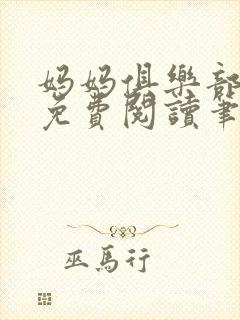 媽媽俱樂部
免費閱讀筆
巫馬行